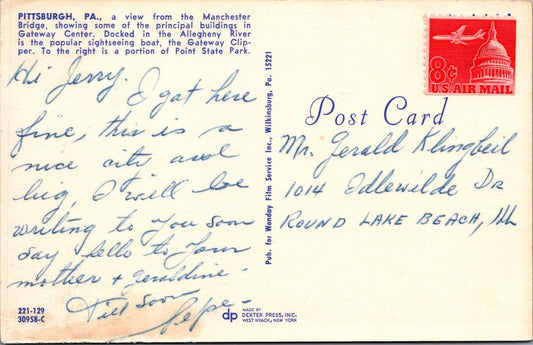 PITTSBURGH, PA., a view from the Manchester
Bridge, showing some of the principal buildings in
Gateway Center. Docked in the Allegheny River
is the popular sightseeing boat, the Gateway Clip-
per. To the right is a portion of Point State Park.
Hi Jerry.
I got here
fine, this is a
nice city and
big, I will be
writing to you soon
say hello to your
mother + Geraldine -
Till soon
Pepe -
221-129
30958-C
Pub. for Wonday Film Service Inc., Wilkinsburg, Pa. 15221
dp MADE BY
DEXTER PRESS, INC.
WEST NYACK, NEW YORK
8¢
U.S. AIR MAIL
Post Card
Mr. Gerald Klingbeil
1014 Idlewilde Dr
ROUND LAKE BEACH, Ill